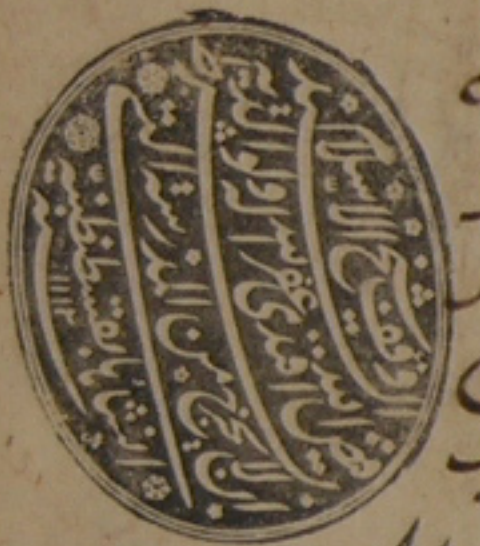 من وقف شيخ الاسلام السيد
فيض الله افندى غفر الله له ولوالديه بشرط
ان لا يخرج من المدرسة التى
انشأها بقسطنطينية
سنة ١١١٢